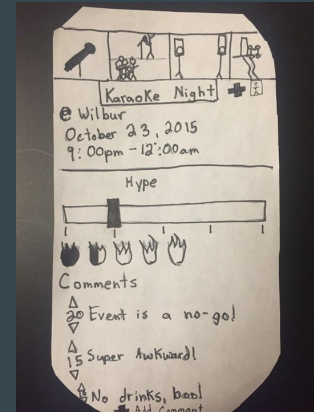 Karaoke Night
@ Wilbur
October 23, 2015
9:00pm-12:00am
Hype
Comments
20 Event is a no-go!
15 Super Awkward!
No drinks, boo!
Add Comment